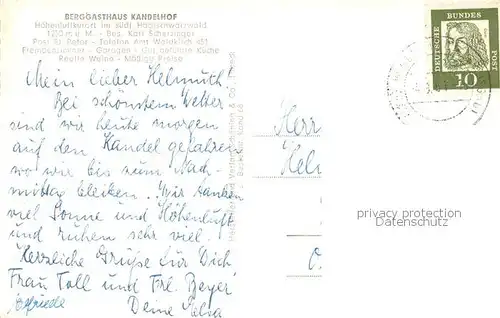 BERGGASTHAUS KANDELHOF
Höhenluftkurort im südl. Hochschwarzwald
1250 m ü. M. - Bes. Karl Scherzinger
Post St. Peter - Telefon Amt Waldkirch 451
Fremdenzimmer - Garagen - Gut geführte Küche
Reelle Weine - Mäßige Preise
Mein lieber Helmuth!
Bei schönstem Wetter
sind wir heute morgen
auf den Kandel gefahren
wo wir bis zum Nach-
mittag bleiben. Wir tanken
viel Sonne und Höhenluft
und ruhen sehr viel.
Herzliche Grüße für Dich
Frau Toll und Frl. Beyer
Deine
Herr
Hel
DEUTSCHE BUNDES POST
10
privacy protection
Datenschutz